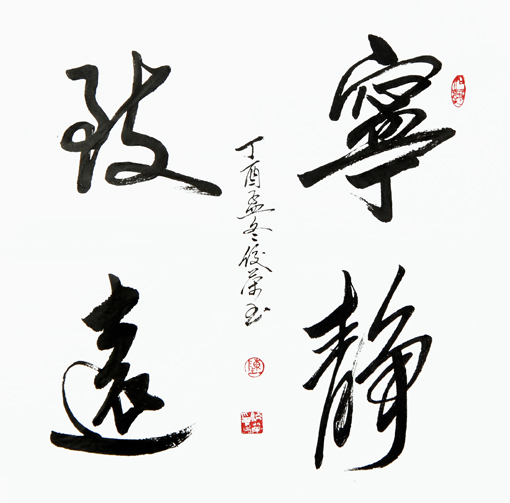 寧靜
致遠
丁酉孟冬俊榮書